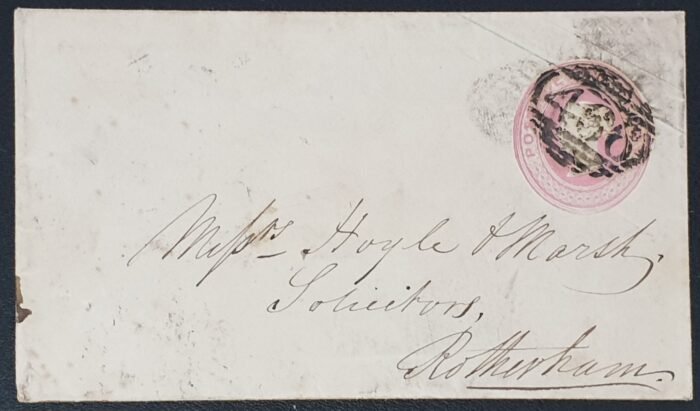 POSTAGE
Messrs Hoyle & Marsh,
Solicitors,
Rotherham.